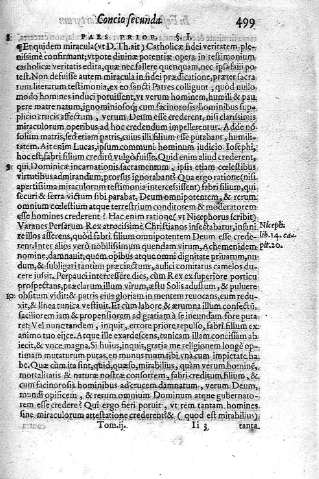 Concio secunda. 499
PARS PRIOR. §. I.
EQuidem miracula (vt D. Th. ait) Catholicæ fidei veritatem ple-
nissimè confirmant; vtpote diuinæ potentiæ opera in testimonium
catholicæ veritatis edita, quæ nec fallere quenquam, nec ipsa falli po-
test. Non defuisse autem miracula in fidei prædicatione, præter sacra
rum literarum testimonia, ex eo sancti Patres colligunt, quòd nullo
modo homines induci potuissent, vt verum hominem, humili & pau
pere matre natum, ignominiosoq́; cum facinorosis hominibus sup-
plicio crucis affectum, verum Deum esse crederent, nisi clarissimis
miraculorum operibus ad hoc credendum impellerentur. Adde no
solùm matris, sed etiam patris, cuius ille filius esse putabatur, humili-
tatem. Ait enim Lucas, ipsum communi hominum iudicio, Ioseph,
hoc est, fabri filium creditū vulgò fuisse. Quid enim aliud crederent,
qui Dominicæ incarnationis sacramentum, ipsis etiam cælestibus
virtutibus admirandum, prorsus ignorabant? Qua ergo ratione (nisi
apertissima miraculorum testimonia intercessissent) fabri filium, qui
securi & serra victum sibi parabat, Deum omnipotentem, & rerum
omnium cælestium atque terrestrium conditorem & moderatorem
esse homines crederent? Hac enim ratione (vt Nicephorus scribit)
Varanes Persarum Rex atrocissimè Christianos insectabatur, insani
re illos asserens, quòd fabri filium omnipotentem Deum esse crede-
rent. Inter alios verò nobilissimum quendam virum, Achemenidem
nomine, damnauit, quem opibus atque omni dignitate priuatum, nu
dum, & subligari tantùm præcinctum, aulici comitatus camelos du-
cere iussit. Perpauci intercessere dies, cùm Rex ex superiore porticu
prospectans, præclarum illum virum, æstu Solis adustum, & puluere
oblitum vidit: & patris eius gloriam in mentem reuocans, eum redu-
xit, & linea tunica vestiuit. Et cùm labore & ærumna illum confectū,
faciliorem iam & propensiorem ad gratiam à se ineundam fore puta
ret: Vel nunc tandem, inquit, errore priore repulso, fabri filium ex
animo tuo eijce. Atque ille exardescens, tunicam illam concissam ab
iecit, & voce magna, Si huius, inquit, gratia me religionem longè op-
timam mutaturum putas, en munus tuum tibi vnà cum impietate ha-
be. Quæ cùm ita sint, quid, quæso, mirabilius, quàm verum hominé,
mortalitatis & naturæ nostræ consortem, fabri creditum filium, &
cum facinorosis hominibus ad crucem damnatum, verum Deum,
mundi opificem, & rerum omnium Dominum atque gubernato-
rem esse credere? Qui ergo fieri potuit, vt rem tantam homines
sine miraculorum attestatione crederent? & (quod est mirabilius)
Tom. ij. Ii 3 tanta
Niceph.
lib. 14. ca-
pit. 20.